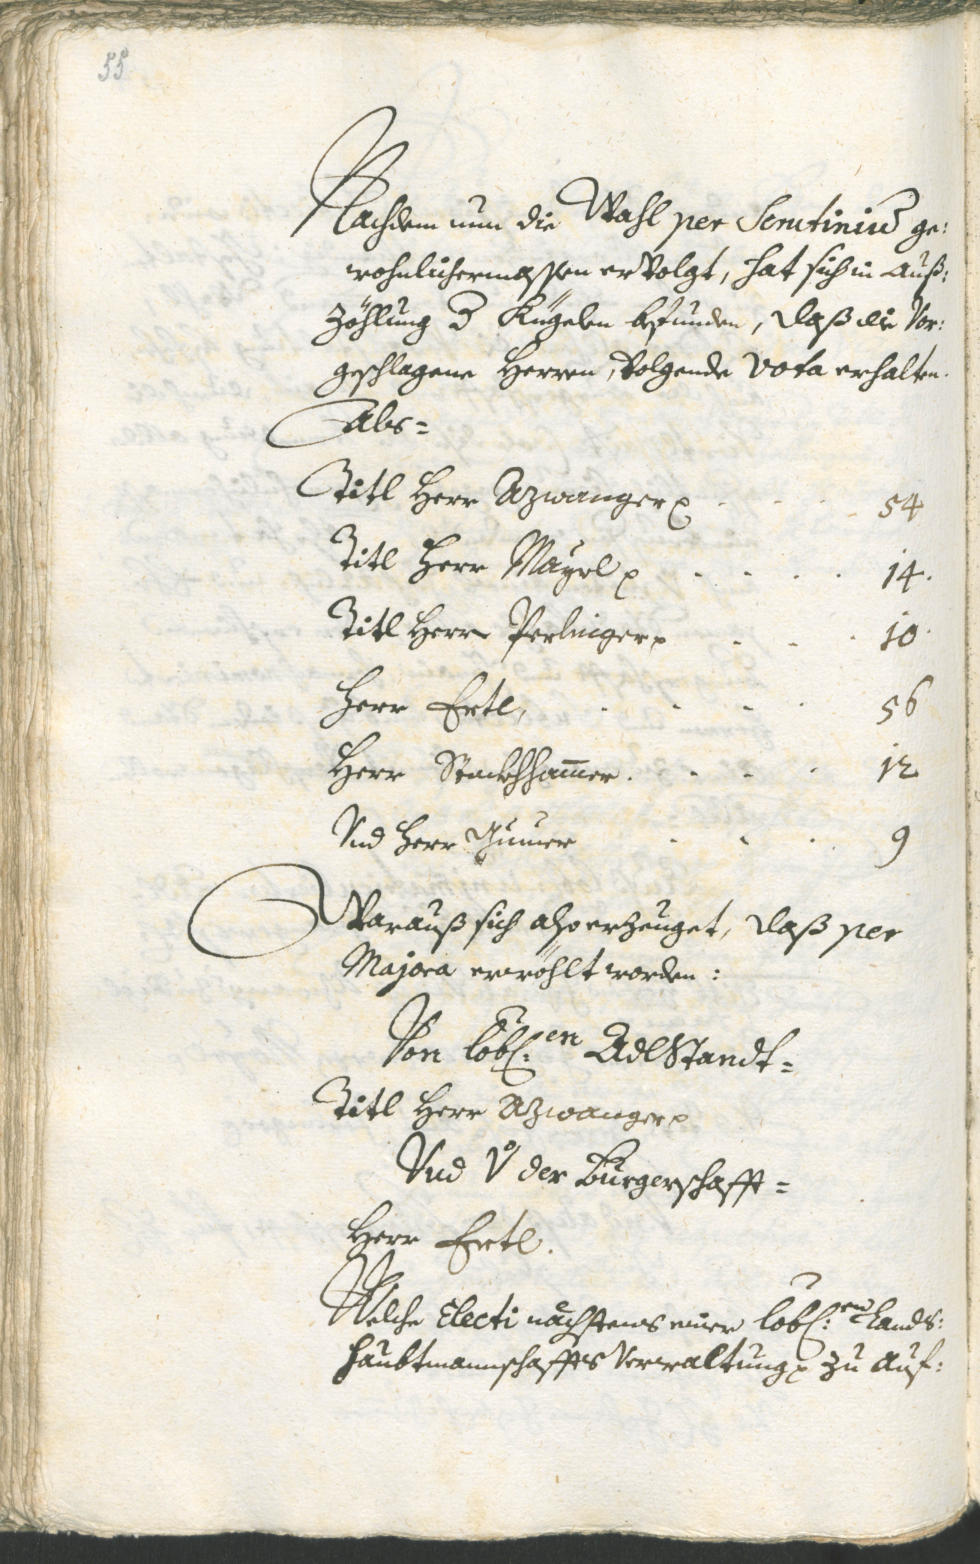 55
Nachdem nun die Wahl per Scrutiniū ge:
wohnlichermassen ervolgt, hat sich in Auß:
zöhlung d Kügelen befunden, daß die Vor:
geschlagene Herren, Volgende Vota erhalten.
Als=
Titl Herr Azwanger 54
Titl Herr Mayrl 14.
Titl Herr Perlinger 10
Herr Ertl, 56
Herr Stockhham̄er. 12
Vnd Herr 9
Warauß sich also erzeuget, daß per
Majora erwöhlt worden:
Von löbl:en Adlstandt=
Titl Herr Azwanger
Vnd V der Burgerschafft=
Herr Ertl.
Welche Electi nächstens einer löbl:en Lands:
haubtmannschaffts Verwaltung zu Auf: